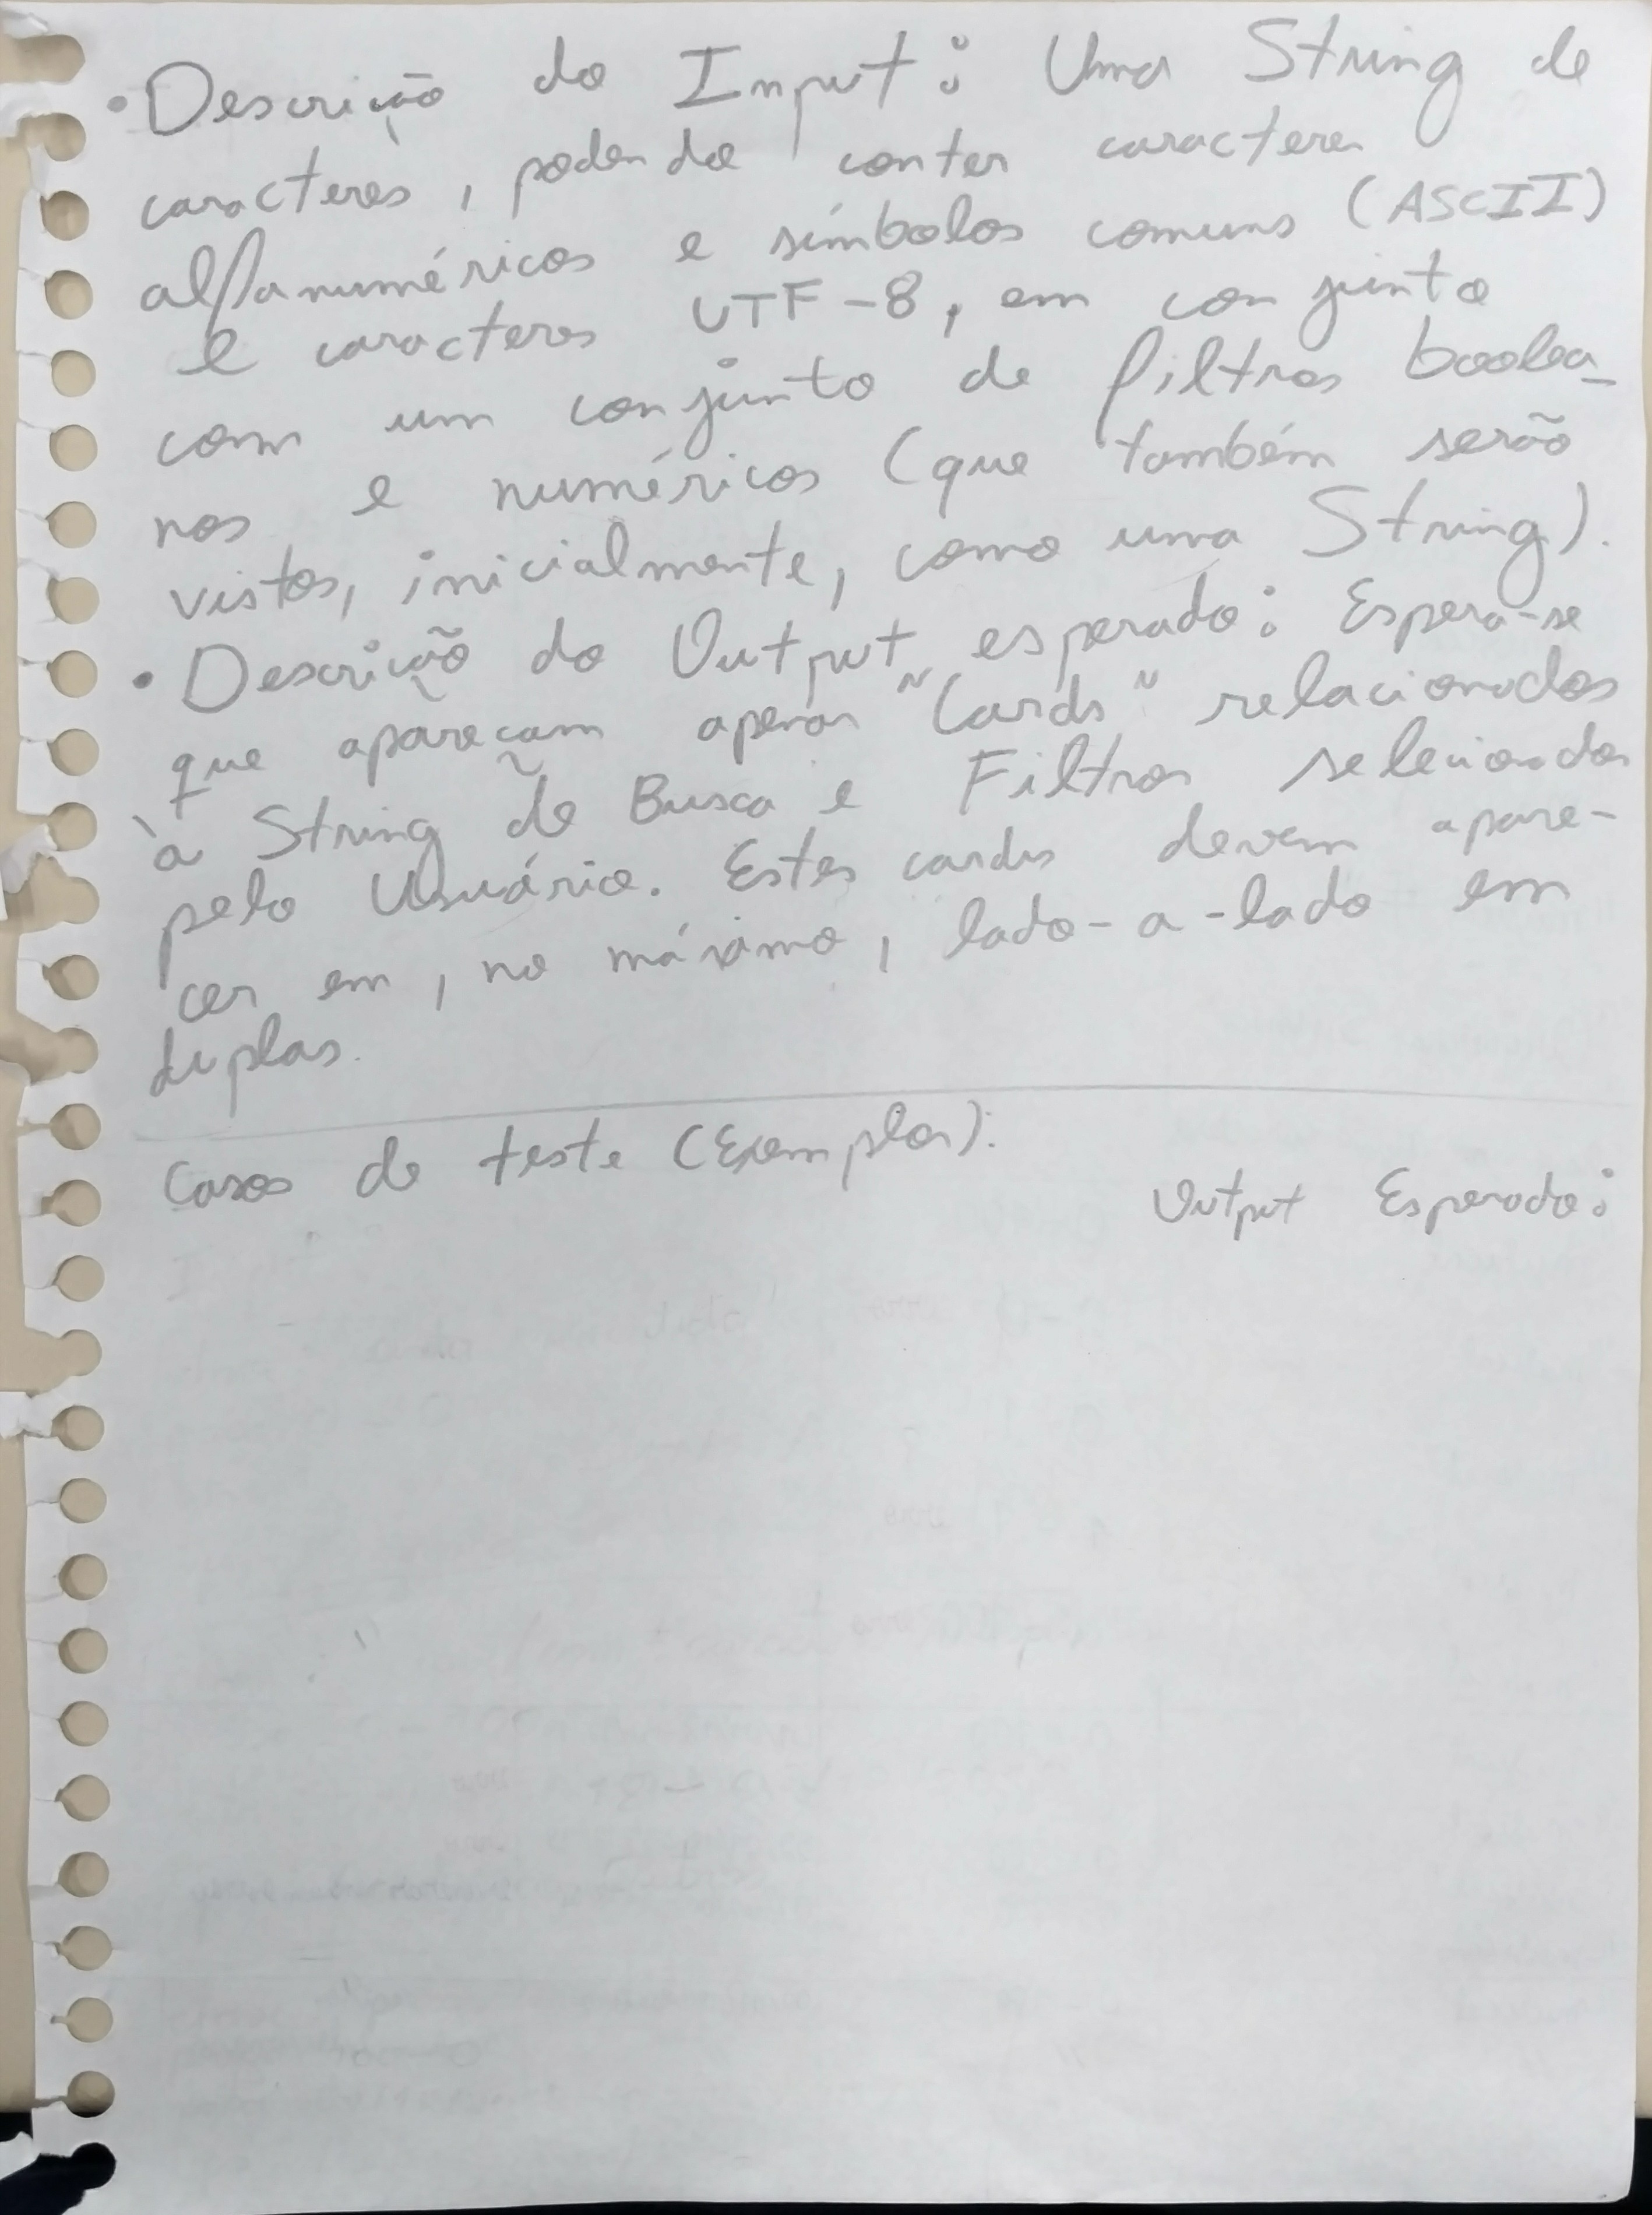 • Descrição do Input: Uma String de
caracteres, podendo conter caracteres
alfanuméricos e símbolos comuns (ASCII)
e caracteres UTF-8, em conjunto
com um conjunto de filtros boolea-
nos e numéricos (que também serão
vistos, inicialmente, como uma String).
• Descrição do Output esperado: Espera-se
que apareçam apenas "Cards" relacionados
à String de Busca e Filtros selecionados
pelo Usuário. Estes cards devem apare-
cer em, no máximo, lado-a-lado em
duplas.
Casos de teste (Exemplos):
Output Esperado: